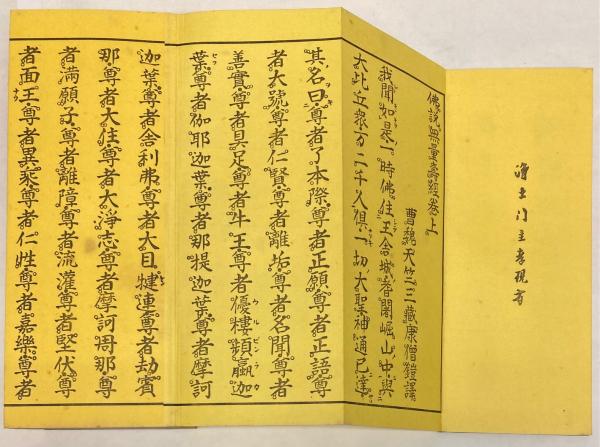 佛說無量壽經卷上
曹魏天竺三藏康僧鎧譯
我聞如是一時佛住王舍城耆闍崛山中與
大比丘衆萬二千人俱一切大聖神通已達
其名曰尊者了本際尊者正願尊者正語尊
者大號尊者仁賢尊者離垢尊者名聞尊者
善實尊者具足尊者牛王尊者優樓頻蠃迦
葉尊者伽耶迦葉尊者那提迦葉尊者摩訶
迦葉尊者舍利弗尊者大目犍連尊者劫賓
那尊者大住尊者大淨志尊者摩訶周那尊
者滿願子尊者離障尊者流灌尊者堅伏尊
者面王尊者異乘尊者仁性尊者嘉樂尊者